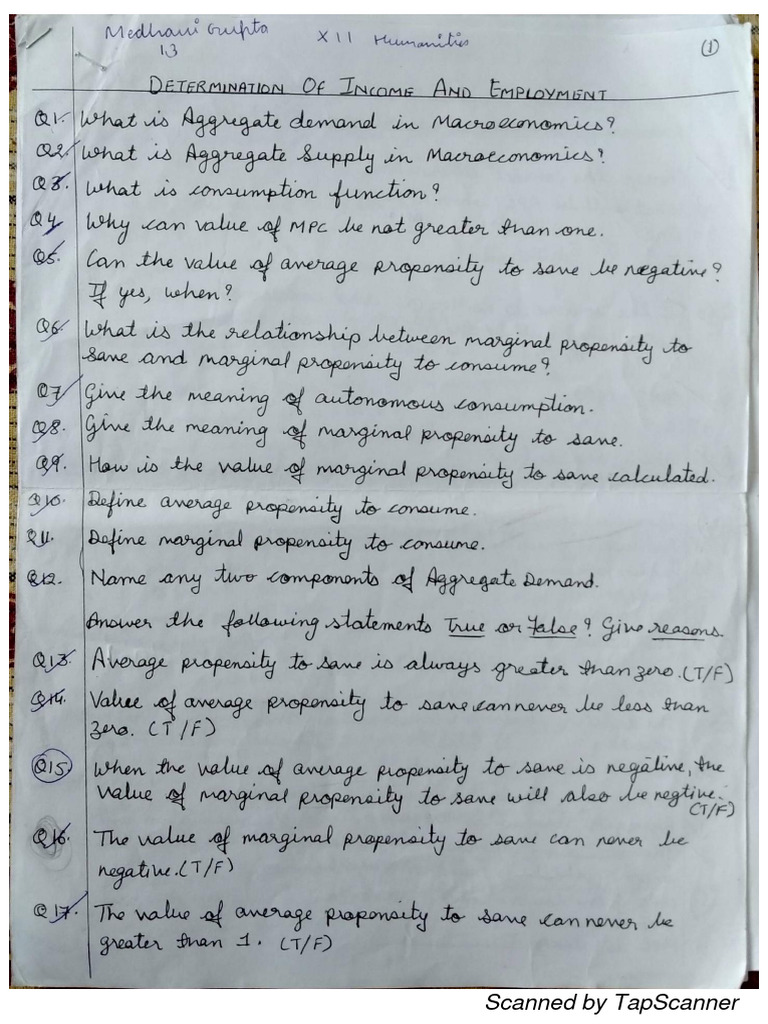 Medhavi Gupta XII Humanities
13 (1)
DETERMINATION OF INCOME AND EMPLOYMENT
Q1. What is Aggregate demand in Macroeconomics?
Q2. What is Aggregate Supply in Macroeconomics?
Q3. What is consumption function?
Q4. Why can value of MPC be not greater than one.
Q5. Can the value of average propensity to save be negative?
If yes, when?
Q6. What is the relationship between marginal propensity to
save and marginal propensity to consume?
Q7. Give the meaning of autonomous consumption.
Q8. Give the meaning of marginal propensity to save.
Q9. How is the value of marginal propensity to save calculated.
Q10. Define average propensity to consume.
Q11. Define marginal propensity to consume.
Q12. Name any two components of Aggregate Demand.
Answer the following statements True or False? Give reasons.
Q13. Average propensity to save is always greater than zero. (T/F)
Q14. Value of average propensity to save can never be less than
zero. (T/F)
Q15. When the value of average propensity to save is negative, the
value of marginal propensity to save will also be negtive.
(T/F)
Q16. The value of marginal propensity to save can never be
negative. (T/F)
Q17. The value of average propensity to save can never be
greater than 1. (T/F)
Scanned by TapScanner